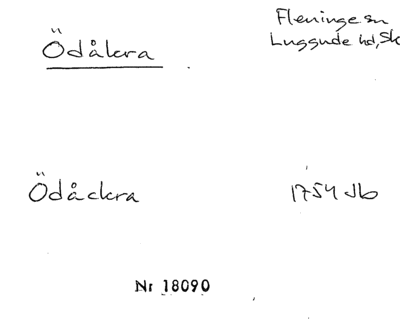 Ödåkra
Fleninge sn
Luggude hd, Sk
Ödåckra
1754 Jb
Nr 18090